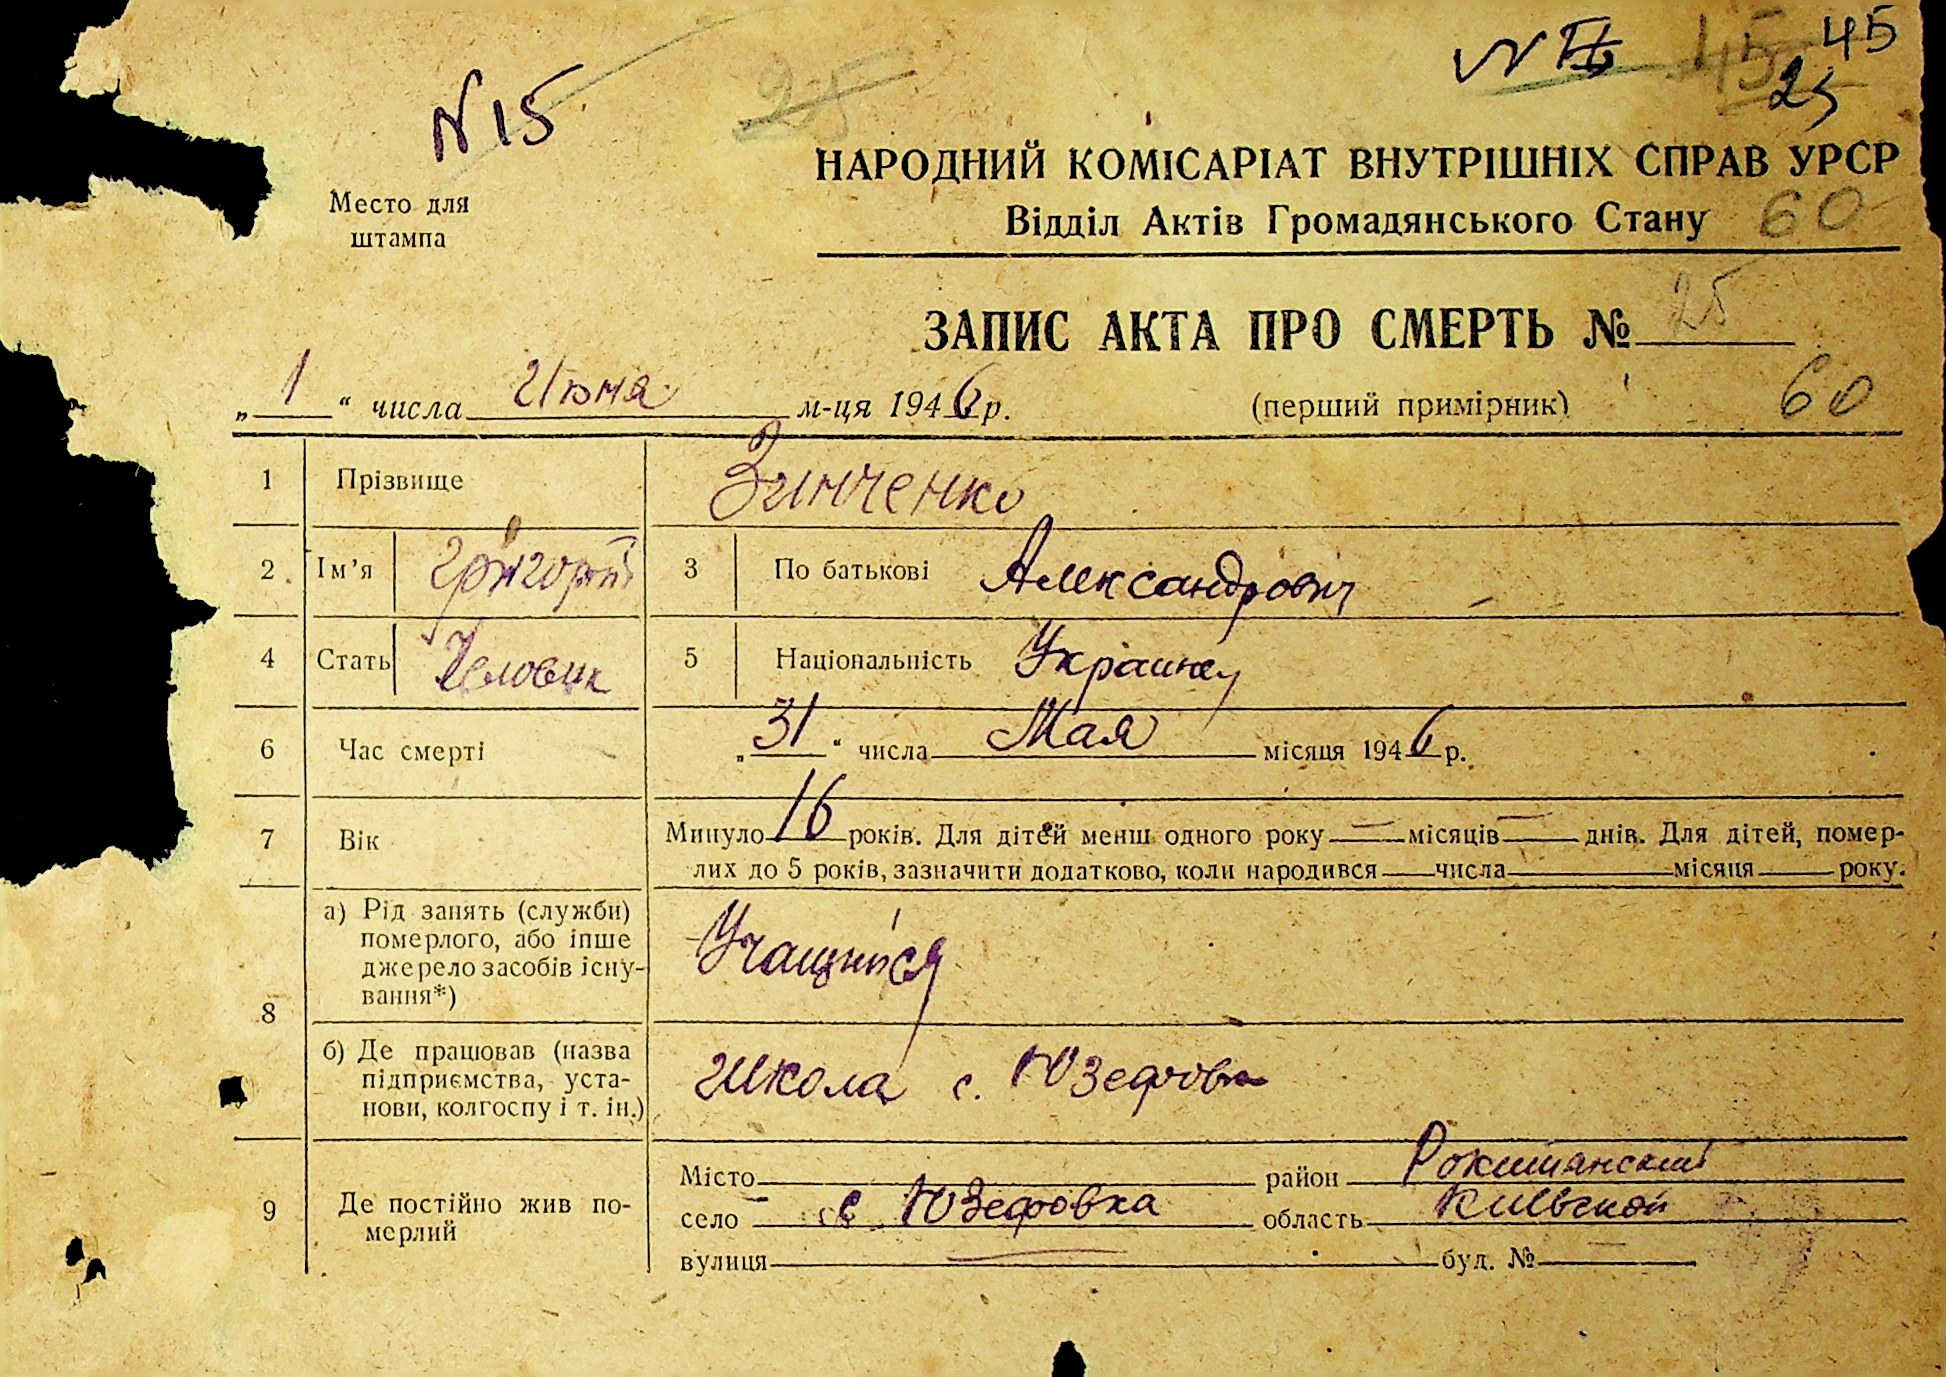 N 15 25 45
25
НАРОДНИЙ КОМІСАРІАТ ВНУТРІШНІХ СПРАВ УРСР
Место для
штампа
Відділ Актів Громадянського Стану 60
ЗАПИС АКТА ПРО СМЕРТЬ № 25
„ 1 “ числа Июня м-ця 1946 р. (перший примірник) 60
1 Прізвище Зинченко
2 Ім’я Григорий 3 По батькові Александрович
4 Стать Человик 5 Національність Украинец
6 Час смерті „ 31 “ числа Мая місяця 1946 р.
7 Вік Минуло 16 років. Для дітей менш одного року — місяців — днів. Для дітей, помер-
лих до 5 років, зазначити додатково, коли народився числа місяця року.
8 а) Рід занять (служби)
померлого, або інше
джерело засобів існу-
вання*)
Учащийся
б) Де працював (назва
підприємства, уста-
нови, колгоспу і т. ін.)
Школа с. Юзефовка
9 Де постійно жив по-
мерлий
Місто — район Рокитянский
село с Юзефовка область Киевской
вулиця — буд. № —